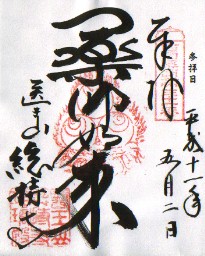 参拝日
平成十一年
五月二日
奉拝
薬師如来
医王山
総持寺